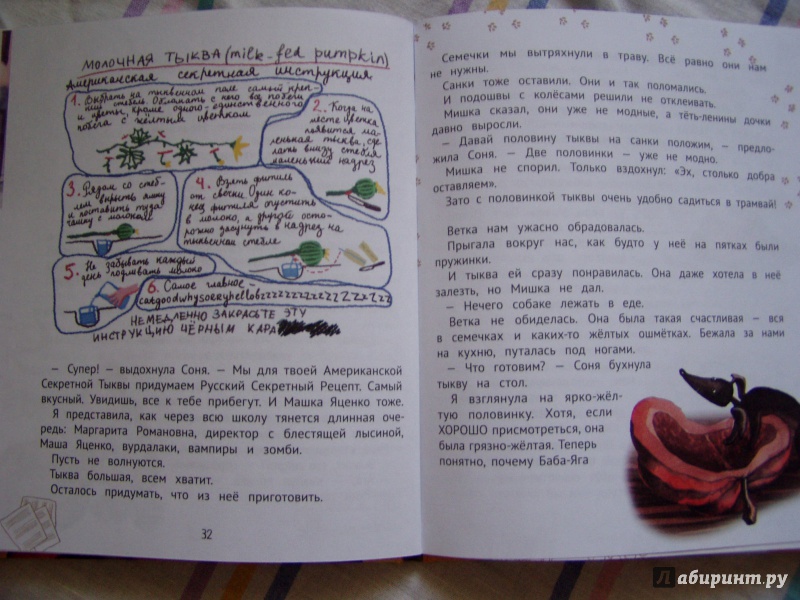 МОЛОЧНАЯ ТЫКВА (milk-fed pumpkin)
Американская секретная инструкция
1. Выбрать на тыквенном поле самый креп-
кий стебель. Обломать с него все побеги
и цветы, кроме одного-единственного
побега с жёлтым цветком
2. Когда на
месте цветка
появится ма-
ленькая тыква, сде-
лать внизу стебля
маленький надрез
3. Рядом со стеб-
лем вырыть ямку
и поставить туда
чашку с молоком
4. Взять фитиль
от свечки. Один ко-
нец фитиля опустить
в молоко, а другой осто-
рожно засунуть в надрез на
тыквенном стебле
5. Не забывать каждый
день подливать молоко
6. Самое главное –
catgoodwhysorryhellobzzzzzzzzzzzzzzzzzzz
НЕМЕДЛЕННО ЗАКРАСЬТЕ ЭТУ
ИНСТРУКЦИЮ ЧЁРНЫМ КАРА
– Супер! – выдохнула Соня. – Мы для твоей Американской
Секретной Тыквы придумаем Русский Секретный Рецепт. Самый
вкусный. Увидишь, все к тебе прибегут. И Машка Яценко тоже.
Я представила, как через всю школу тянется длинная оче-
редь: Маргарита Романовна, директор с блестящей лысиной,
Маша Яценко, вурдалаки, вампиры и зомби.
Пусть не волнуются.
Тыква большая, всем хватит.
Осталось придумать, что из неё приготовить.
32
Семечки мы вытряхнули в траву. Всё равно они нам
не нужны.
Санки тоже оставили. Они и так поломались.
И подошвы с колёсами решили не отклеивать.
Мишка сказал, они уже не модные, а тёть-ленины дочки
давно выросли.
– Давай половину тыквы на санки положим, – предло-
жила Соня. – Две половинки – уже не модно.
Мишка не спорил. Только вздохнул: «Эх, столько добра
оставляем».
Зато с половинкой тыквы очень удобно садиться в трамвай!
Ветка нам ужасно обрадовалась.
Прыгала вокруг нас, как будто у неё на пятках были
пружинки.
И тыква ей сразу понравилась. Она даже хотела в неё
залезть, но Мишка не дал.
– Нечего собаке лежать в еде.
Ветка не обиделась. Она была такая счастливая – вся
в семечках и каких-то жёлтых ошмётках. Бежала за нами
на кухню, путалась под ногами.
– Что готовим? – Соня бухнула
тыкву на стол.
Я взглянула на ярко-жёл-
тую половинку. Хотя, если
ХОРОШО присмотреться, она
была грязно-жёлтая. Теперь
понятно, почему Баба-Яга
Лабиринт.ру